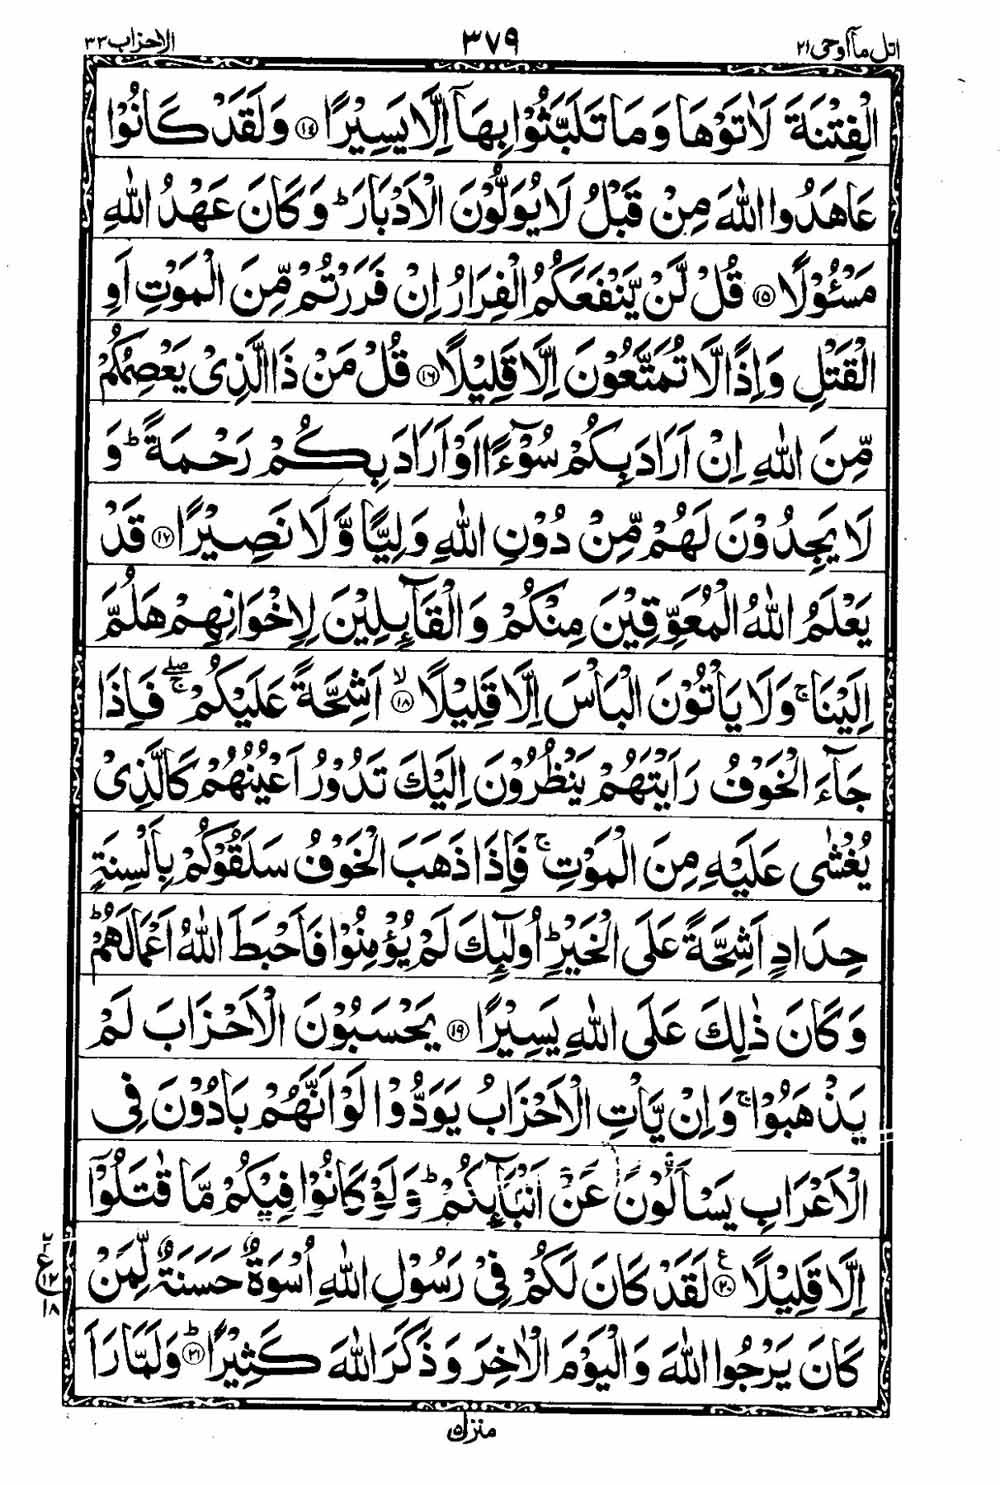 اتل مآ اوحی ٢١
٣٧٩
الاحزاب ٣٣
الْفِتْنَةَ لَاٰتَوْهَا وَمَا تَلَبَّثُوْا بِهَاۤ اِلَّا يَسِيْرًا ۝١٤ وَلَقَدْ كَانُوْا
عَاهَدُوا اللّٰهَ مِنْ قَبْلُ لَا يُوَلُّوْنَ الْاَدْبَارَ ؕ وَكَانَ عَهْدُ اللّٰهِ
مَسْـُٔوْلًا ۝١٥ قُلْ لَّنْ يَّنْفَعَكُمُ الْفِرَارُ اِنْ فَرَرْتُمْ مِّنَ الْمَوْتِ اَوِ
الْقَتْلِ وَاِذًا لَّا تُمَتَّعُوْنَ اِلَّا قَلِيْلًا ۝١٦ قُلْ مَنْ ذَا الَّذِىْ يَعْصِمُكُمْ
مِّنَ اللّٰهِ اِنْ اَرَادَ بِكُمْ سُوْٓءًا اَوْ اَرَادَ بِكُمْ رَحْمَةً ؕ وَ
لَا يَجِدُوْنَ لَهُمْ مِّنْ دُوْنِ اللّٰهِ وَلِيًّا وَّلَا نَصِيْرًا ۝١٧ قَدْ
يَعْلَمُ اللّٰهُ الْمُعَوِّقِيْنَ مِنْكُمْ وَالْقَآئِلِيْنَ لِاِخْوَانِهِمْ هَلُمَّ
اِلَيْنَا ۚ وَلَا يَاْتُوْنَ الْبَاْسَ اِلَّا قَلِيْلًا ۙ۝١٨ اَشِحَّةً عَلَيْكُمْ ۖۚ فَاِذَا
جَآءَ الْخَوْفُ رَاَيْتَهُمْ يَنْظُرُوْنَ اِلَيْكَ تَدُوْرُ اَعْيُنُهُمْ كَالَّذِىْ
يُغْشٰى عَلَيْهِ مِنَ الْمَوْتِ ۚ فَاِذَا ذَهَبَ الْخَوْفُ سَلَقُوْكُمْ بِاَلْسِنَةٍ
حِدَادٍ اَشِحَّةً عَلَى الْخَيْرِ ؕ اُولٰٓئِكَ لَمْ يُؤْمِنُوْا فَاَحْبَطَ اللّٰهُ اَعْمَالَهُمْ ؕ
وَكَانَ ذٰلِكَ عَلَى اللّٰهِ يَسِيْرًا ۝١٩ يَحْسَبُوْنَ الْاَحْزَابَ لَمْ
يَذْهَبُوْا ۚ وَاِنْ يَّاْتِ الْاَحْزَابُ يَوَدُّوْا لَوْ اَنَّهُمْ بَادُوْنَ فِى
الْاَعْرَابِ يَسْاَلُوْنَ عَنْ اَنْۢبَآئِكُمْ ؕ وَلَوْ كَانُوْا فِيْكُمْ مَّا قٰتَلُوْۤا
اِلَّا قَلِيْلًا ۝٢٠ ع لَقَدْ كَانَ لَكُمْ فِىْ رَسُوْلِ اللّٰهِ اُسْوَةٌ حَسَنَةٌ لِّمَنْ
كَانَ يَرْجُوا اللّٰهَ وَالْيَوْمَ الْاٰخِرَ وَذَكَرَ اللّٰهَ كَثِيْرًا ؕ۝٢١ وَلَمَّا رَاَ
١٢
ع
١٢
١٨
منزل